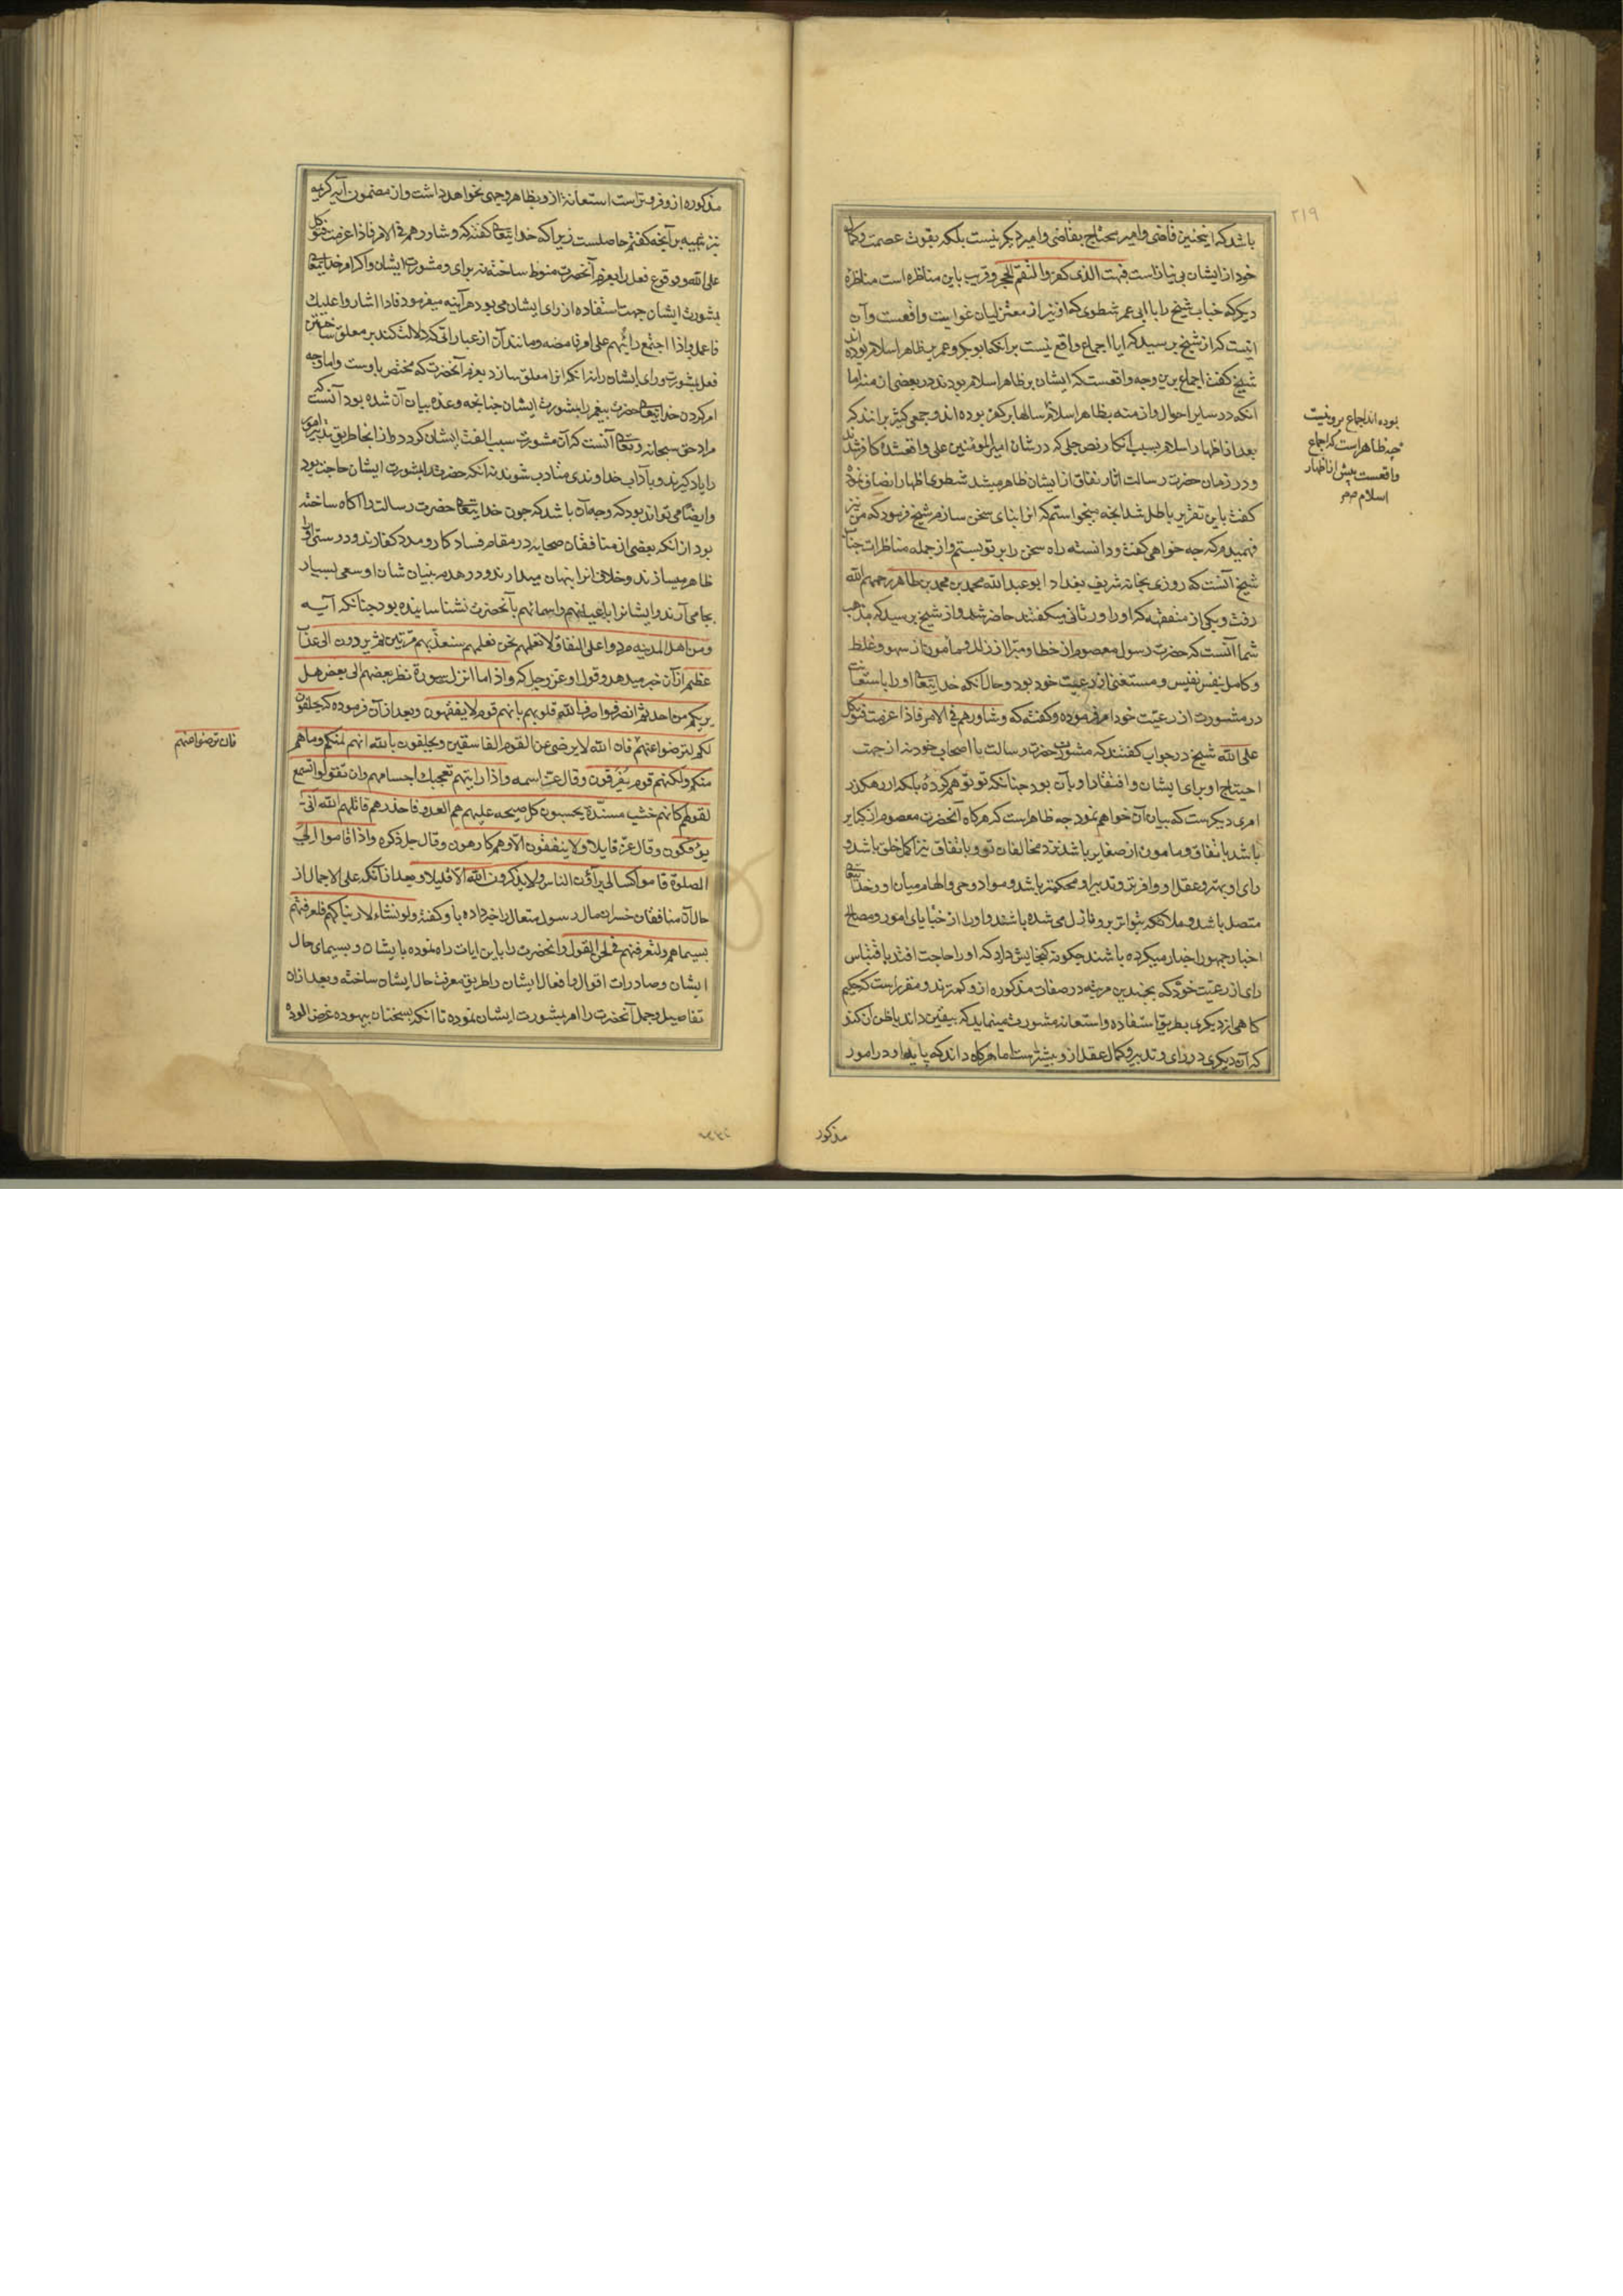 ٢١٩
باشد که اینچنین قاضی و امیر محتاج بقاضی و امیر دیگر نیست بلکه بقوت عصمت و کمال
خود از ایشان بی نیاز است فبهت الذی کفر والتقم الحجر و قریب باین مناظره است مناظره
دیگر که جناب شیخ را با ابی عمر شطوی که او نیز از معتزلیان غوایت واقعست و آن
اینست که از شیخ پرسید که ایا اجماع واقع نیست برآنکه ابو بکر و عمر بر ظاهر اسلام بوده اند
شیخ گفت اجماع برین وجه واقعست که ایشان بر ظاهر اسلام بودند در بعضی از منه اما
آنکه در سایر احوال و ازمنه بظاهر اسلام سالها بر کفر بوده اند و جمعی کثیر برانند که
بعد از اظهار اسلام بسبب انکار نص جلی که در شان امیر المومنین علی واقعشده کافر شدند
و در زمان حضرت رسالت اثار نفاق از ایشان ظاهر میشد شطوی اظهار انصاف نموده
گفت باین تقریر باطل شد انچه میخواستم که انرا بنای سخن سازم شیخ فرمود که من نیز
فهمیدم که چه خواهی گفت و دانسته راه سخن را بر تو بستم و از جمله مناظرات جناب
شیخ آنست که روزی بخانه شریف بغداد ابو عبد الله محمد بن محمد بن طاهر رحمهم الله
رفت و یکی از متفقهه که او را ورثانی میگفتند حاضر شد و از شیخ پرسید که مذهب
شما آنست که حضرت رسول معصوم از خطا و مبرا از زلل و مامون از سهو و غلط
و کامل بنفس نفیس و مستغنی از رعیت خود بود و حال آنکه خدایتعالی او را باستعانت
در مشورت از رعیت خود امر فرموده و گفته که وشاورهم فی الامر فاذا عزمت فتوکل
علی الله شیخ در جواب گفتند که مشورت حضرت رسالت با اصحاب خود نه از جهت
احتیاج او برای ایشان و افتقار او بآن بود چنانکه تو توهم کرده بلکه از رهگذر
امری دیگرست که بیان آن خواهم نمود چه ظاهر است که هرگاه آنحضرت معصوم از کبایر
باشد باتفاق و مامون از صغایر باشد نزد مخالفان تو و باتفاق نیز اکمل خلق باشد و
رای او بهتر و عقل او وافرتر و تدبیر او محکمتر باشد و مواد وحی و الهام میان او و خدایتعالی
متصل باشد و ملائکه بتواتر برو نازل می شده باشند و او را از خبایای امور و مصالح
اخبار جمهور اخبار میکرده باشند چگونه گنجایش دارد که او را حاجت افتد باقتباس
رای از رعیت خود که بچندین مرتبه در صفات مذکوره ازو کمترند و مقرر است که حکیم
گاهی از دیگری بطریق استفاده و استعانه مشورت مینماید که بیقین داند یا ظن آن کند
که آن دیگری در رای و تدبیر و کمال عقل ازو بیشتر ست اما هرگاه داند که پایه او در امور
بوده اند اجماع برو نیست
چه ظاهر است که اجماع
واقعست پیش از اظهار
اسلام
مذکور
مذکوره ازو فروتر است استعانة ازو بظاهر وجهی نخواهد داشت و از مضمون آیه کریمه
نیز تنبیه بر آنچه گفتم حاصلست زیرا که خدایتعالی گفته که وشاورهم فی الامر فاذا عزمت فتوکل
علی الله و وقوع فعل را بعزم آنحضرت منوط ساخته نه برای و مشورت ایشان و اگر امر خدایتعالی
بشورت ایشان جهت استفاده از رای ایشان می بود هر آینه میفرمود فاذا اشاروا علیک
فاعمل و اذا اجتمع رایهم علی امر فامضه و مانند آن از عباراتی که دلالت کند بر معلق ساختن
فعل بشورت و رای ایشان را نه آنکه انرا معلق سازد بعزم آنحضرت که مختص باوست و اما وجه
امر کردن خدایتعالی حضرت پیغمبر را بشورت ایشان چنانچه وعده بیان آن شده بود آنست که
مراد حق سبحانه و تعالی آنست که آن مشورت سبب الفت ایشان گردد و از انجا طریق تدبیر امور
را یاد گیرند و بآداب خداوندی متادب شوند نه آنکه حضرت را بمشورت ایشان حاجت بود
و ایضا می تواند بود که وجه آن باشد که چون خدایتعالی حضرت رسالت را آگاه ساخته
بود از انکه بعضی از منافقان صحابه در مقام فساد کار و مدد کفارند و دوستی او را
ظاهر میسازند و خلاف انرا پنهان میدارند و در هدم بنیان شان او سعی بسیار
بجا می آرند و ایشانرا باعیانهم و اسمائهم بآنحضرت نشناسانیده بود چنانکه آیه
ومن اهل المدینه مردوا علی النفاق لا تعلمهم نحن نعلمهم سنعذبهم مرتین ثم یردون الی عذاب
عظیم از آن خبر میدهد و قول او عز و جل که واذا ما انزلت سورة نظر بعضهم الی بعض هل
یریکم من احد ثم انصرفوا صرف الله قلوبهم بانهم قوم لا یفقهون و بعد از آن فرموده که یحلفون
لکم لترضوا عنهم فان الله لا یرضی عن القوم الفاسقین و یحلفون بالله انهم لمنکم وما هم
منکم ولکنهم قوم یفرقون و قال عز اسمه واذا رایتهم تعجبک اجسامهم وان تقولوا تسمع
لقولهم کانهم خشب مسندة یحسبون کل صیحه علیهم هم العدو فاحذرهم قاتلهم الله انی
یؤفکون و قال عز قایلا ولا ینفقون الا وهم کارهون و قال جل ذکره واذا قاموا الی
الصلوة قاموا کسالی یرآؤن الناس ولا یذکرون الله الا قلیلا و بعد از آنکه علی الاجمال از
حال آن منافقان خسران مال رسول متعال را خبر داده باو گفته ولو نشاء لاریناکهم فلعرفتهم
بسیماهم ولتعرفنهم فی لحن القول و آنحضرت را باین ایات راه نموده بایشان و بسیمای حال
ایشان و صادرات اقوال و افعال ایشان را طریق معرفت حال ایشان ساخته و بعد ازان
تفاصیل و جمل آنحضرت را امر بشورت ایشان نموده تا آنکه بسخنان بیهوده غرض الوده
فان ترضوا عنهم